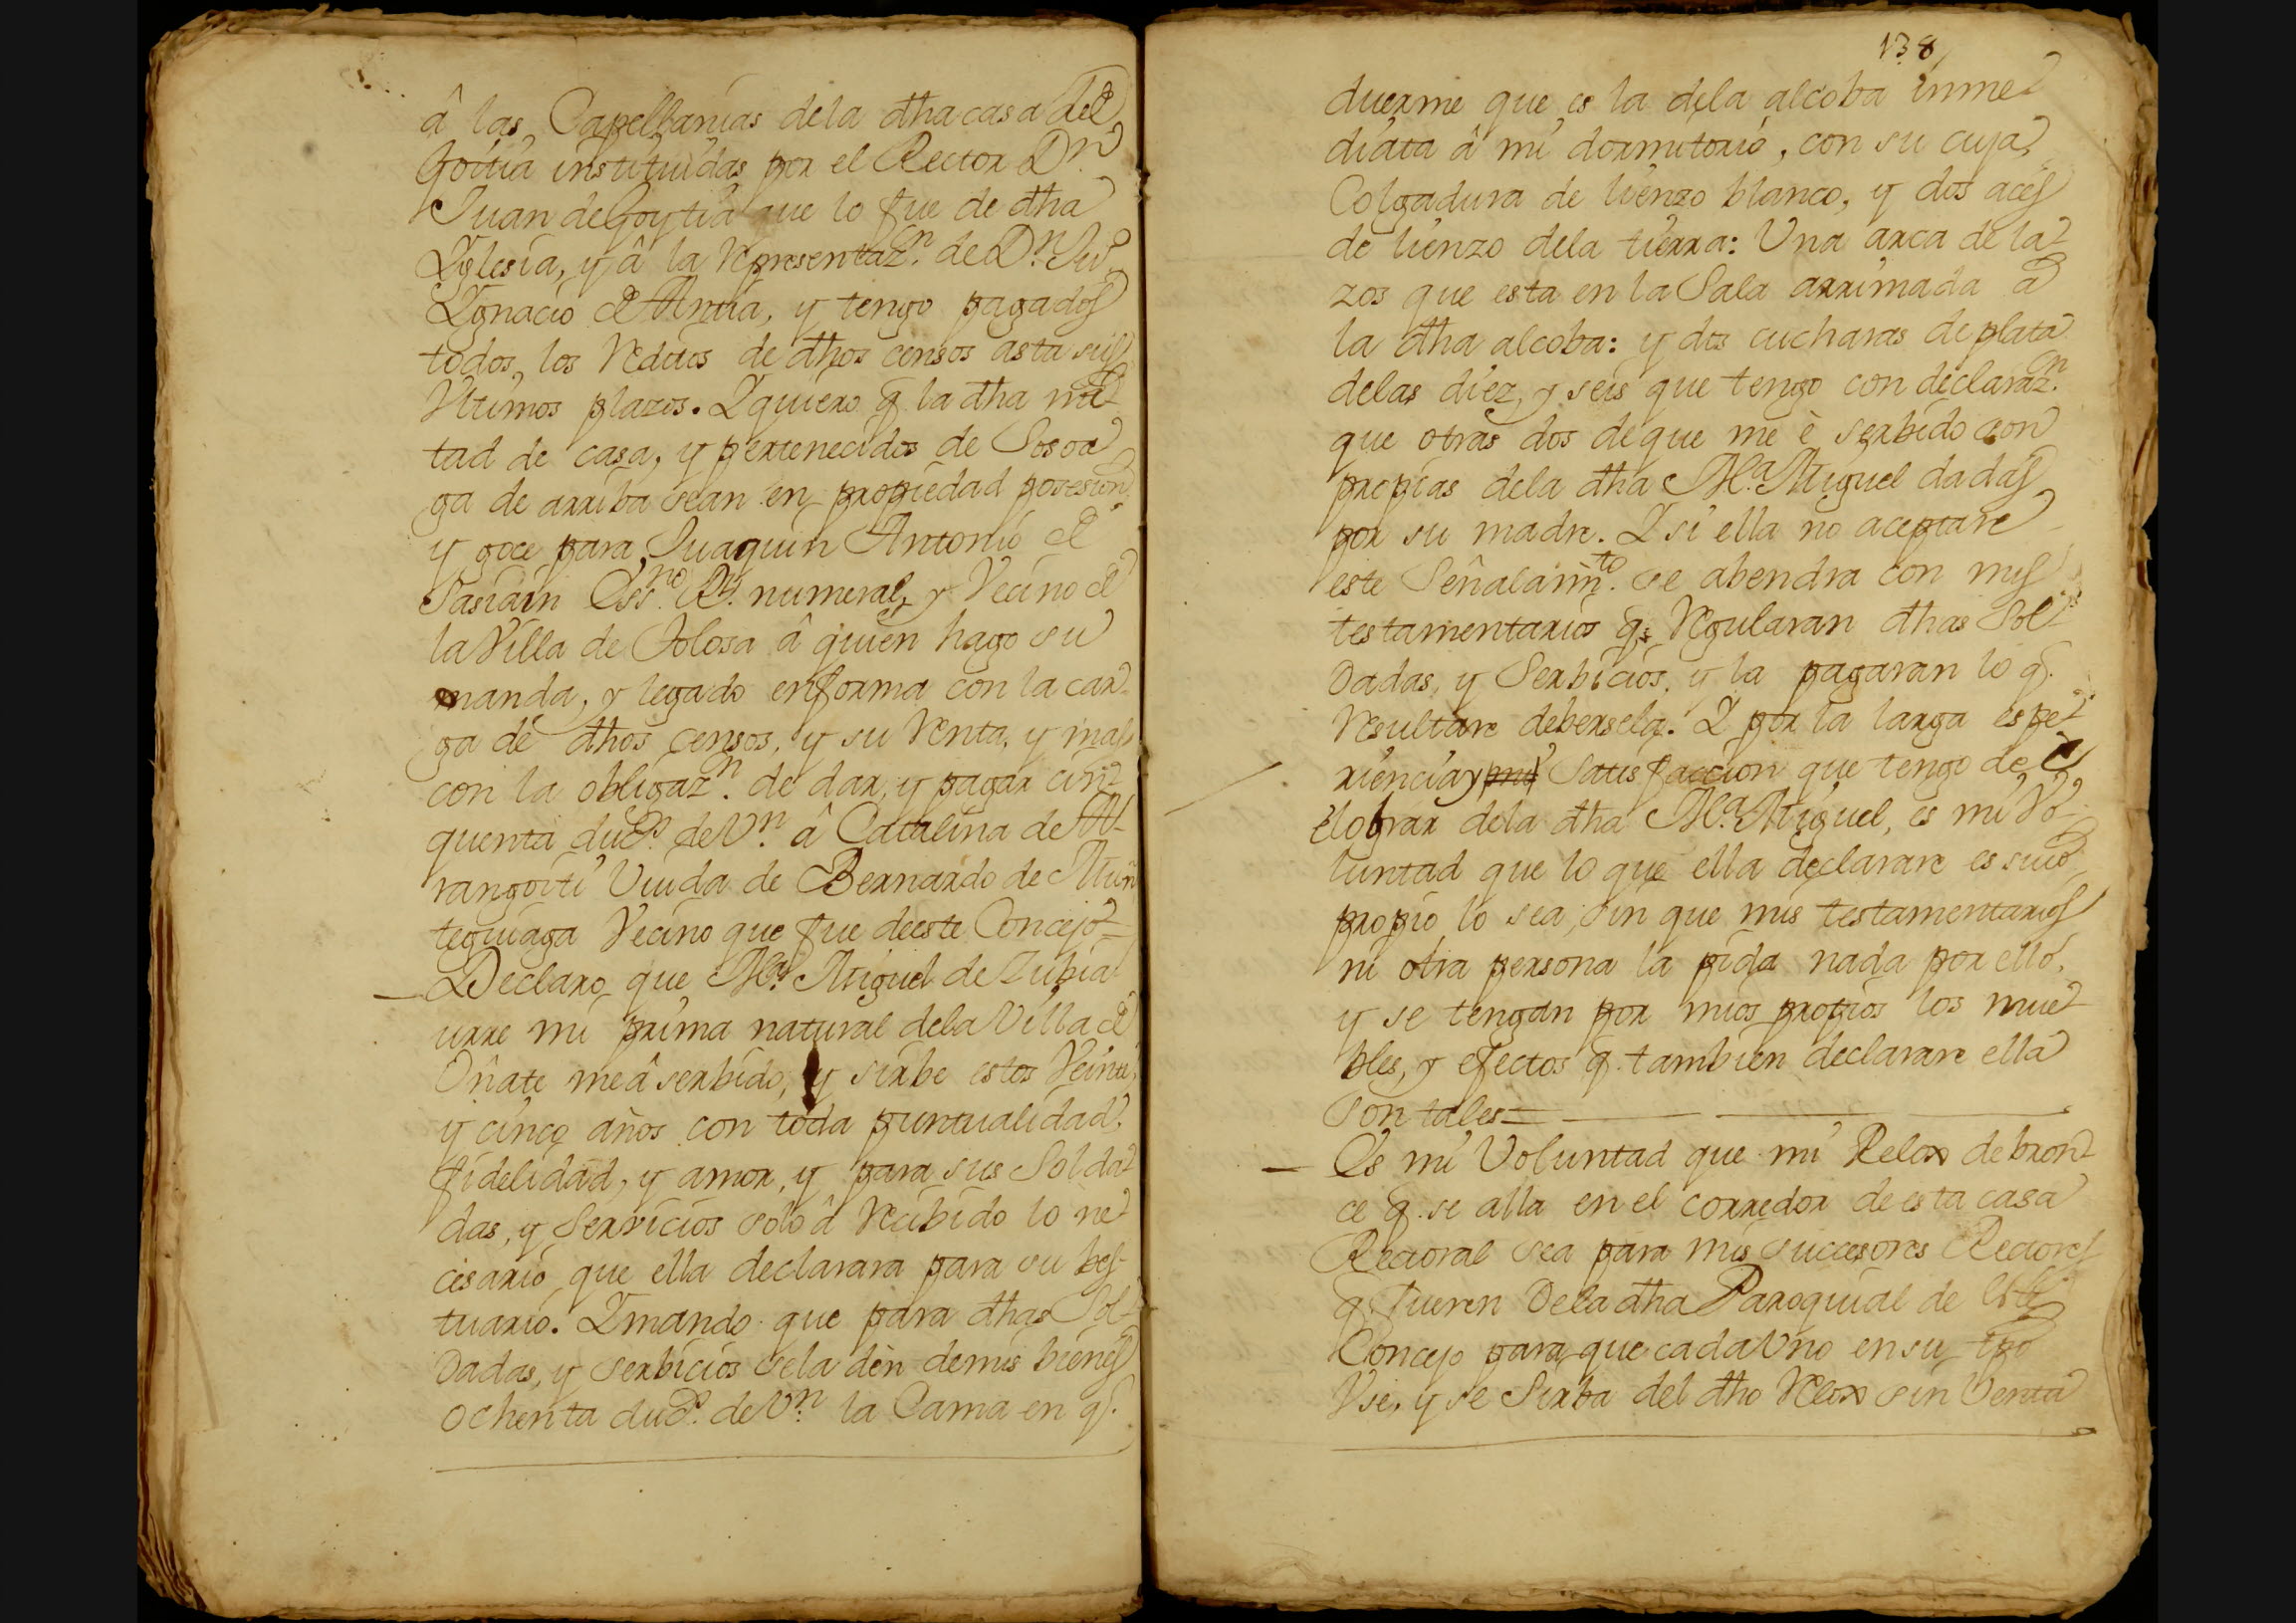 â las Capellanias dela dha casa de
Goitia instituidas por el Rector Dn.
Juan de Goytia que lo fue de dha
Yglesia, y â la Representazn. de Dn. Juo.
Ygnacio de , y tengo pagados
todos los Reditos de dhos censos asta sus
Vltimos plazos. Y quiero q. la dha mi
tad de casa, y pertenecidos de Sosoa
ga de arriba sean en propiedad posesion,
y goce para Juaquin Antonio de
Sasiain Essno. Rl. numeral, y Vecino de
la Villa de Tolosa â quien hago su
manda, y legado en forma con la car
ga de dhos censos, y su Renta, y mas
con la obligazn. de dar, y pagar cin
quenta ducs. de Vn. â Catalina de
rangoiti Viuda de Bernardo de Mun
teguiaga Vecino que fue de este Concejo=
Declaro que Ma. Miguel de Zubia
urre mi prima natural dela Villa de
Oñate me â serbido, y sirbe estos Veinte
y cinco años con toda puntualidad,
fidelidad, y amor, y para sus Solda
das, y Servicios solo â Recibido lo ne
cesario que ella declarara para su bes-
tuario. Y mando que para dhas Sol-
Dadas, y serbicios se la dèn de mis bienes
Ochenta ducs. de Vn. la Cama en q.
138
duerme que es la dela alcoba inme
diata â mi dormitorio, con su cuja,
Colgadura de lienzo blanco, y dos aces
de lienzo dela tierra: Una arca de la
zos que esta en la Sala arrimada a
la dha alcoba: y dos cucharas de plata
delas diez, y seis que tengo con declarazn.
que otras dos de que me è serbido son
propias dela dha Ma. Miguel dadas
por su madre. Y si ella no aceptare
este Señalamto. se abendra con mis
testamentarios qs. Regularan dhas Sol
Dadas, y Serbicios, y la pagaran lo q.
Resultare debersela. Y por la larga espe
riencia y mi Satisfaccion que tengo de
el obrar dela dha Ma. Miguel, es mi Vo-
luntad que lo que ella declarare es suio
propio lo sea, sin que mis testamentarios
ni otra persona la pida nada por ello,
y se tengan por mios propios los mue
bles, y efectos q. tambien declarare ella
son tales=
Es mi Voluntad que mi Relox de bron
ce q. se alla en el corredor de esta casa
Rectoral sea para mis succesores Rectores
q. fueren Dela dha Paroquial de este
Concejo para que cada Vno en su tpo
Vse, y se Sirba del dho Relox sin Venta